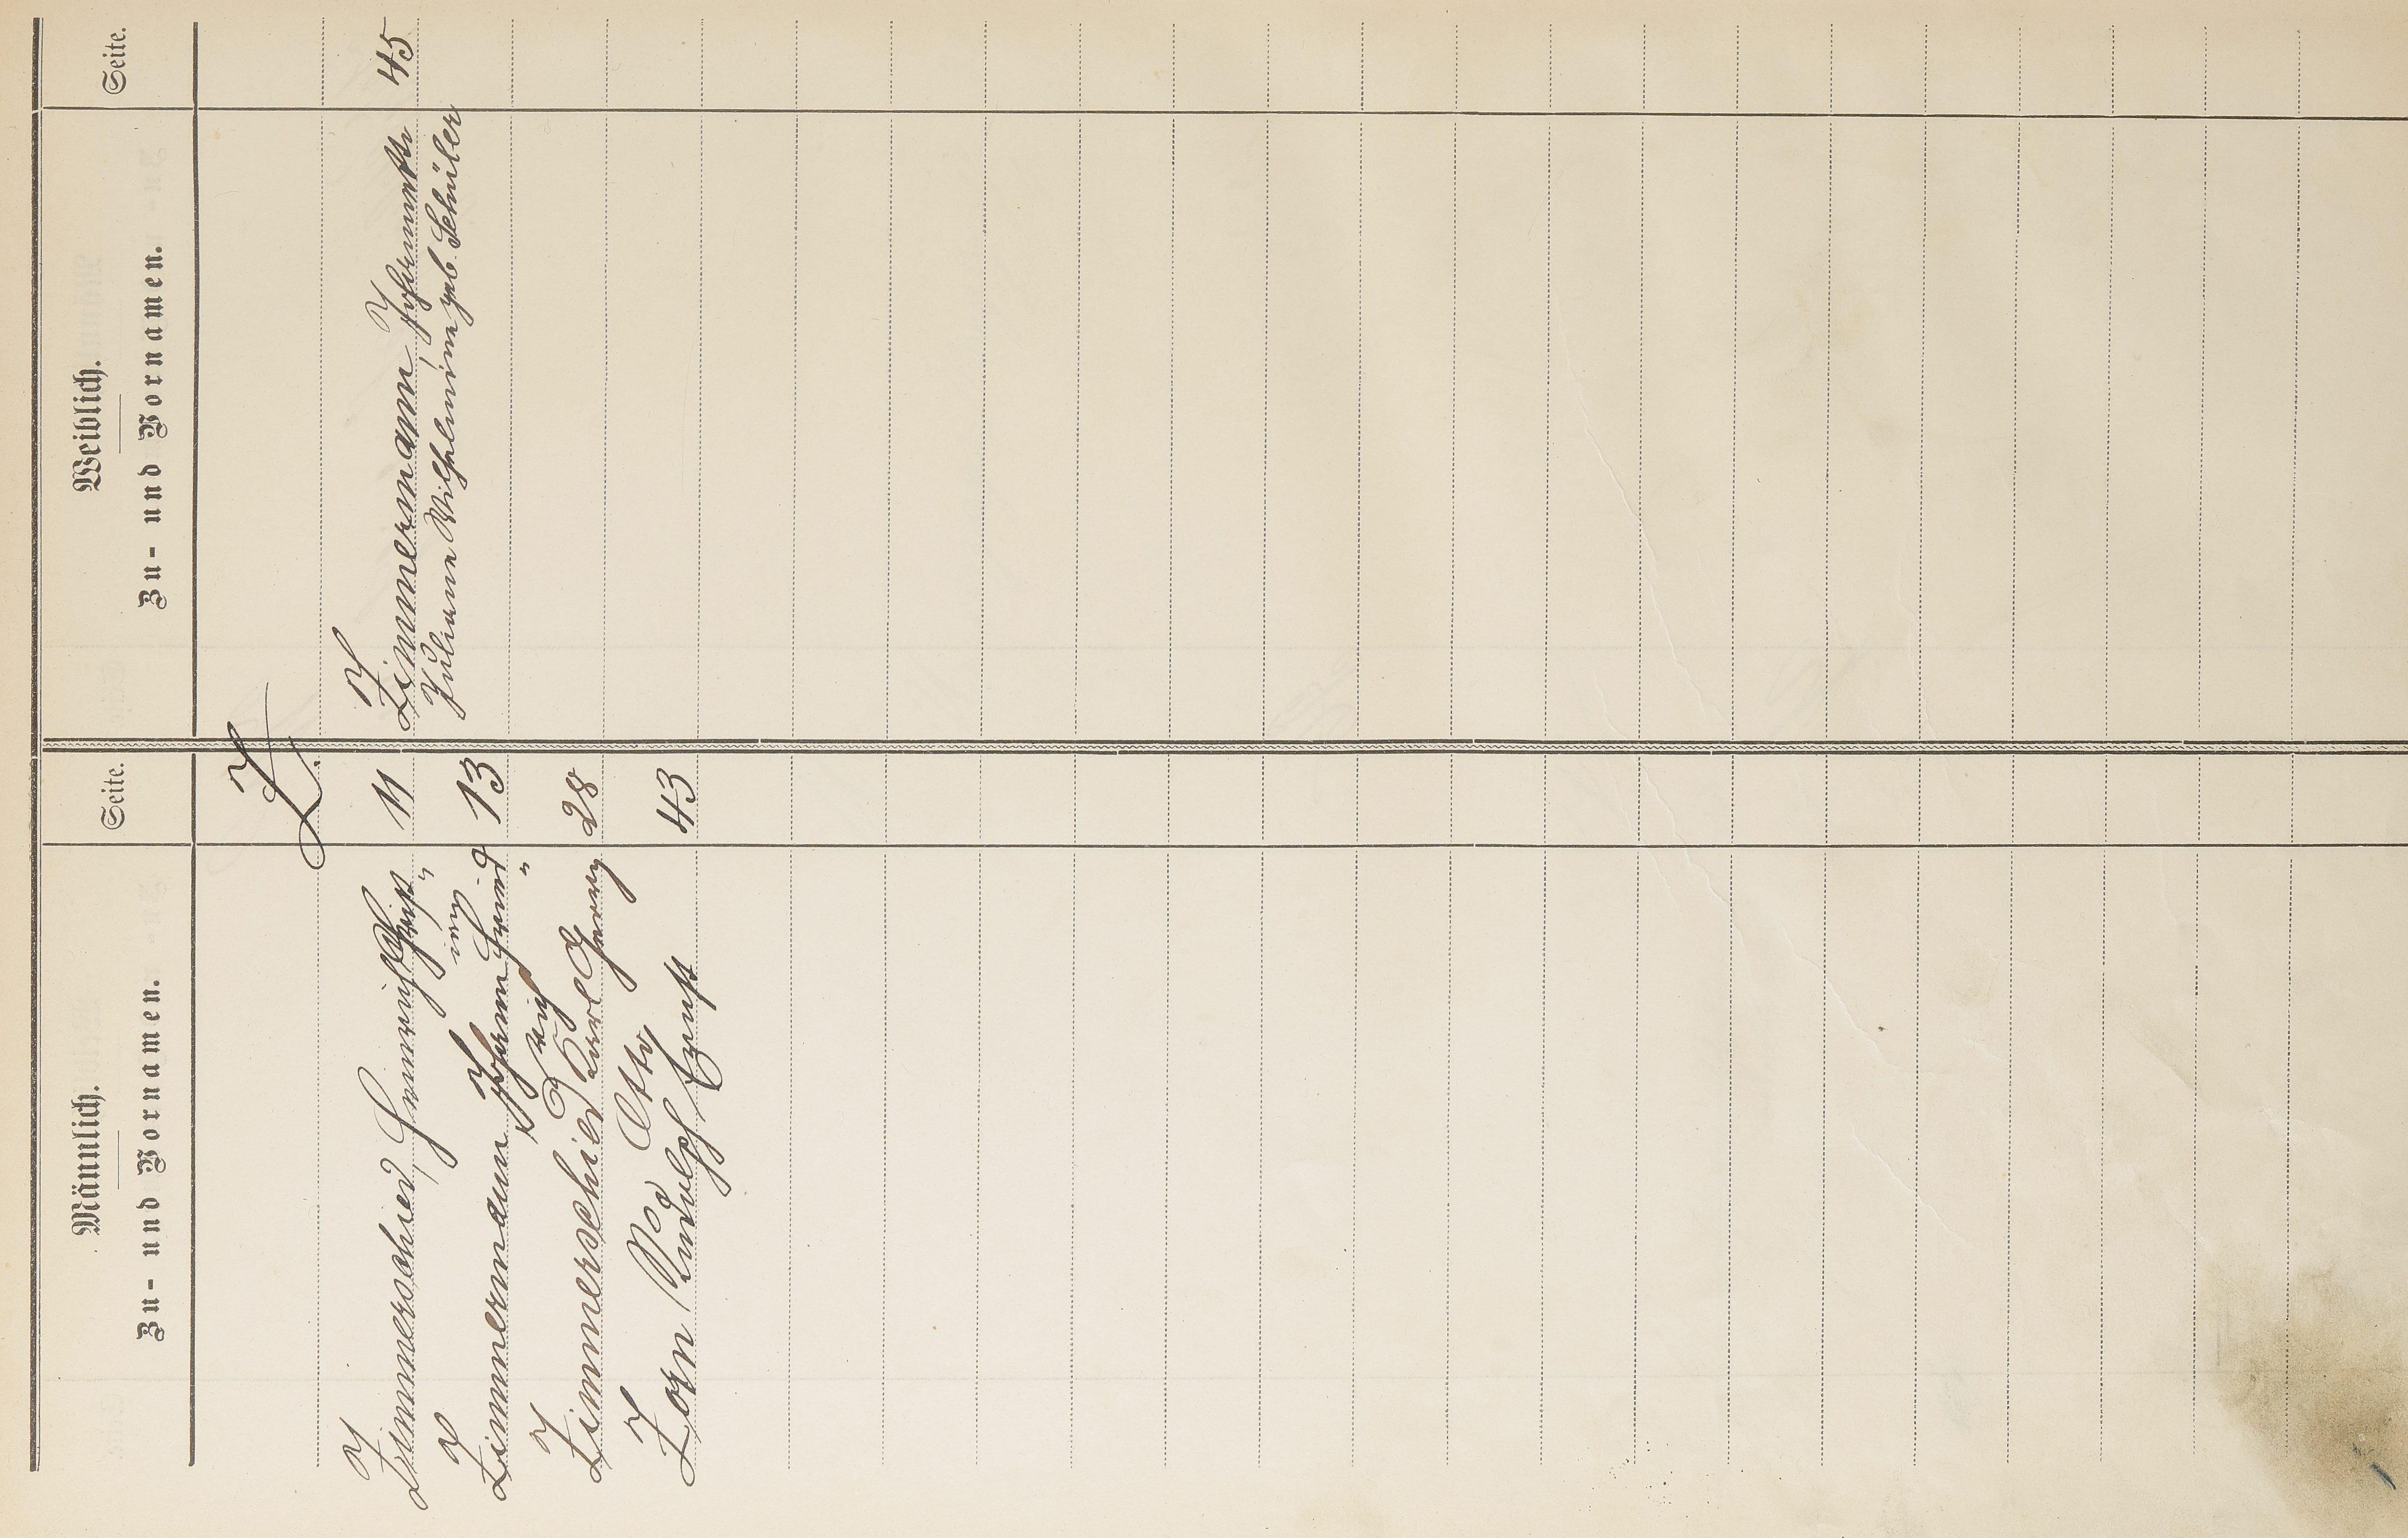 Männlich.
Zu- und Vornamen.
Seite.
Weiblich.
Zu- und Vornamen.
Seite.
Z.
Zimmerschied, Heinrich Christ 11
Zimmermann Johann Heinrich 13
Zimmerschied Karl Georg 28
Zorn Rudolph Otto Ernst 43
Zimmermann, Johannette 45
Juliane Wilhelmine geb. Schüler